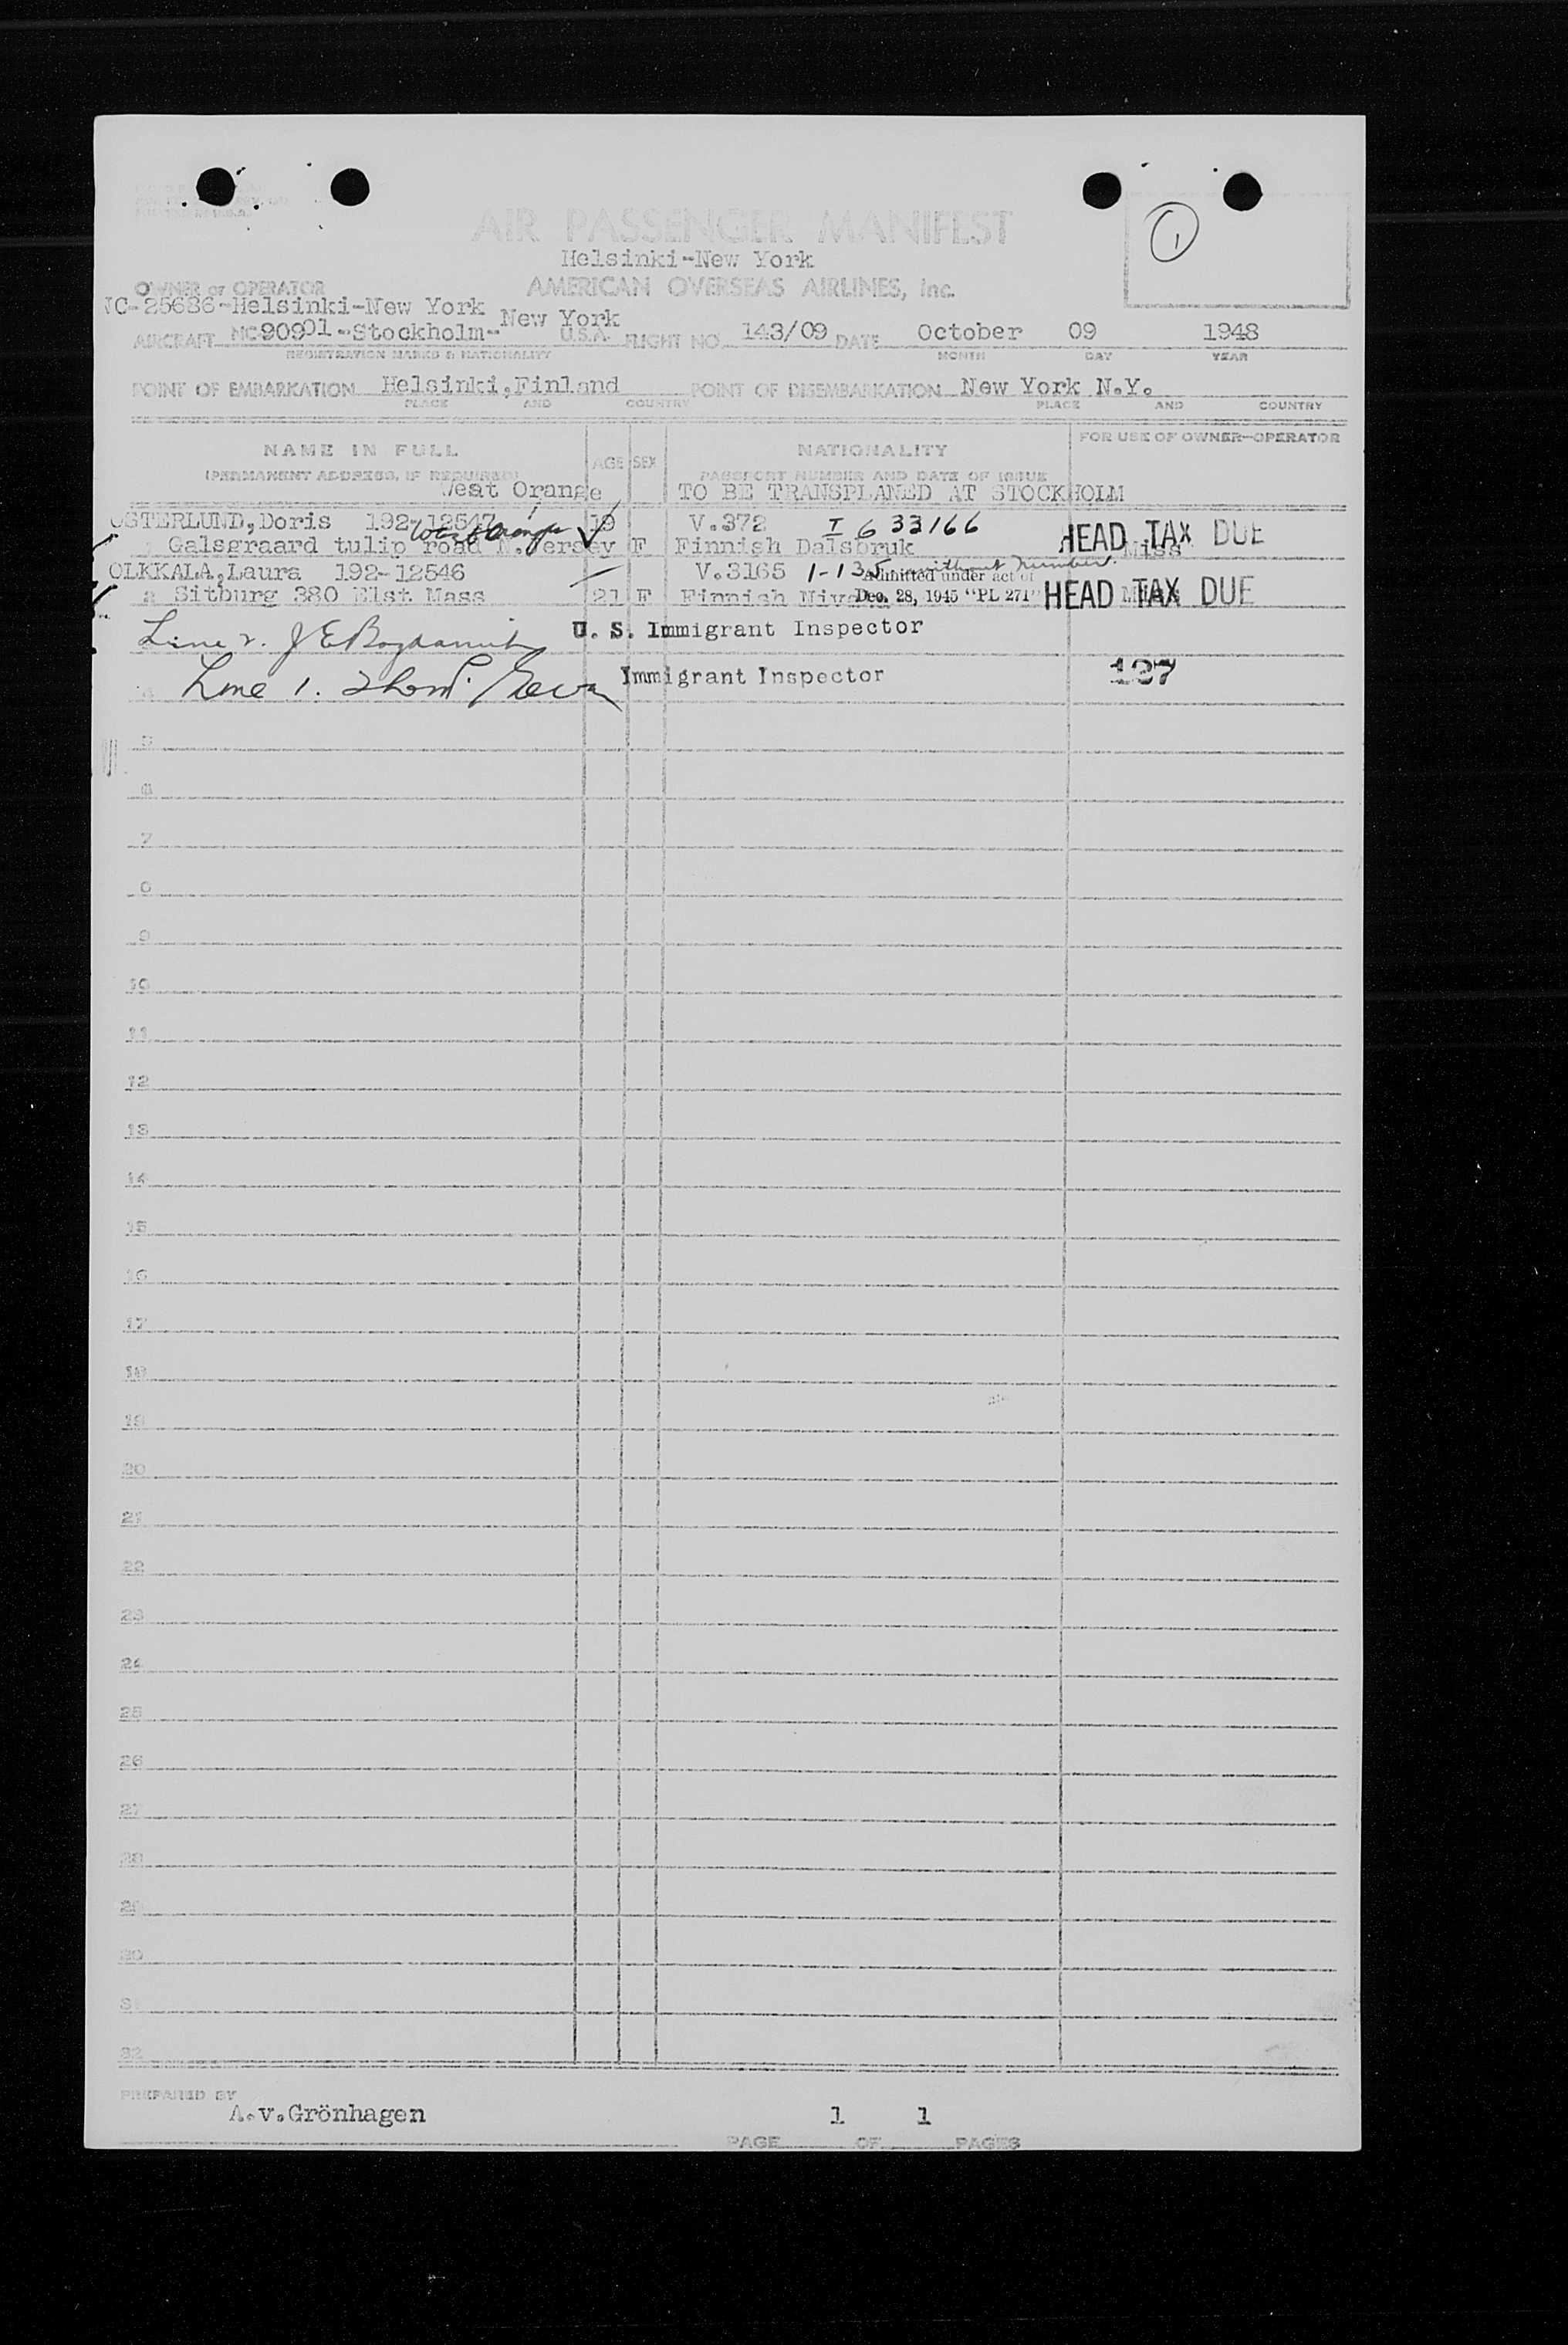 1
AIR PASSENGER MANIFEST
Helsinki-New York
OWNER or OPERATOR AMERICAN OVERSEAS AIRLINES, Inc.
NC-25686-Helsinki-New York
AIRCRAFT NC-90901-Stockholm-New York U.S.A. FLIGHT NO. 143/09 DATE October 09 1948
REGISTRATION MARKS & NATIONALITY MONTH DAY YEAR
POINT OF EMBARKATION Helsinki,Finland POINT OF DISEMBARKATION New York N.Y.
PLACE AND COUNTRY PLACE AND COUNTRY
NAME IN FULL AGE SEX NATIONALITY FOR USE OF OWNER—OPERATOR
(PERMANENT ADDRESS, IF REQUIRED) PASSPORT NUMBER AND DATE OF ISSUE
West Orange TO BE TRANSPLANED AT STOCKHOLM
OSTERLUND,Doris 192-12547 West Orange 19 V.372 I 633166 HEAD TAX DUE
Galsgraard tulip road N.Yersey F Finnish Dalsbruk Miss
OLKKALA,Laura 192-12546 V.3165 1-135 without number Admitted under act of
2 Sitburg 380 Elst Mass 21 F Finnish Dec. 28, 1945 "PL 271" HEAD TAX DUE
Line 2. J E U. S. Immigrant Inspector
4 Line 1. Immigrant Inspector 127
5
6
7
8
9
10
11
12
13
14
15
16
17
18
19
20
21
22
23
24
25
26
27
28
29
30
31
32
PREPARED BY
A.v.Grönhagen
PAGE 1 OF 1 PAGES